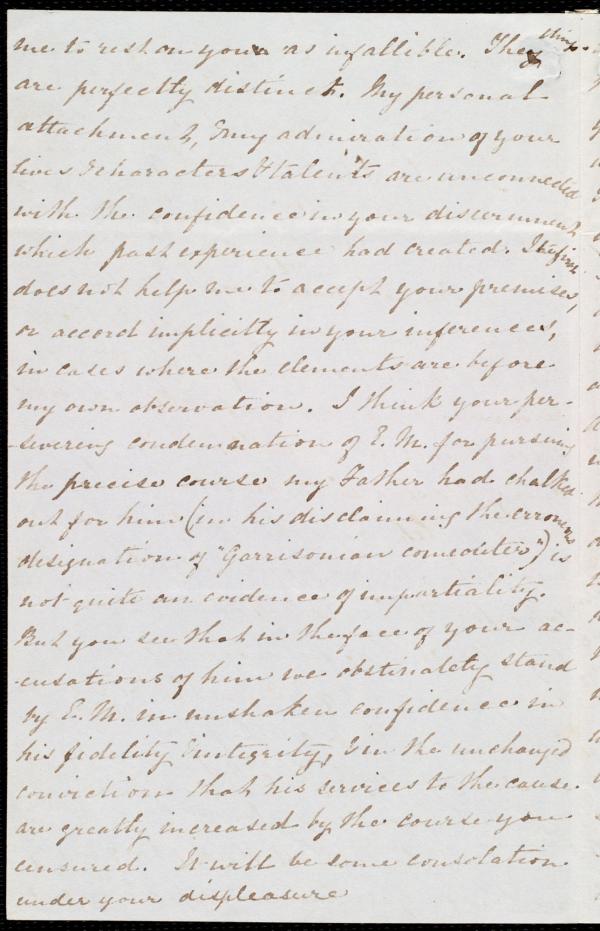 me to rest on yours as infallible. The things
are perfectly distinct. My personal
attachment, & my admiration of your
lives & characters & talents are unconnected
with the confidence in your discernment
which past experience had created. It
does not help me to accept your premises,
or accord implicitly in your inferences,
in cases where the elements are before
my own observation. I think your per-
-severing condemnation of E. M. for pursuing
the precise course my Father had chalked
out for him (in his disclaiming the erroneous
designation of "Garrisonian comeouter") is
not quite an evidence of impartiality.
But you see that in the face of your ac-
-cusations of him we obstinately stand
by E. M. in unshaken confidence in
his fidelity & integrity, & in the unchanged
conviction that his services to the cause
are greatly increased by the course you
censured. It will be some consolation
under your displeasure